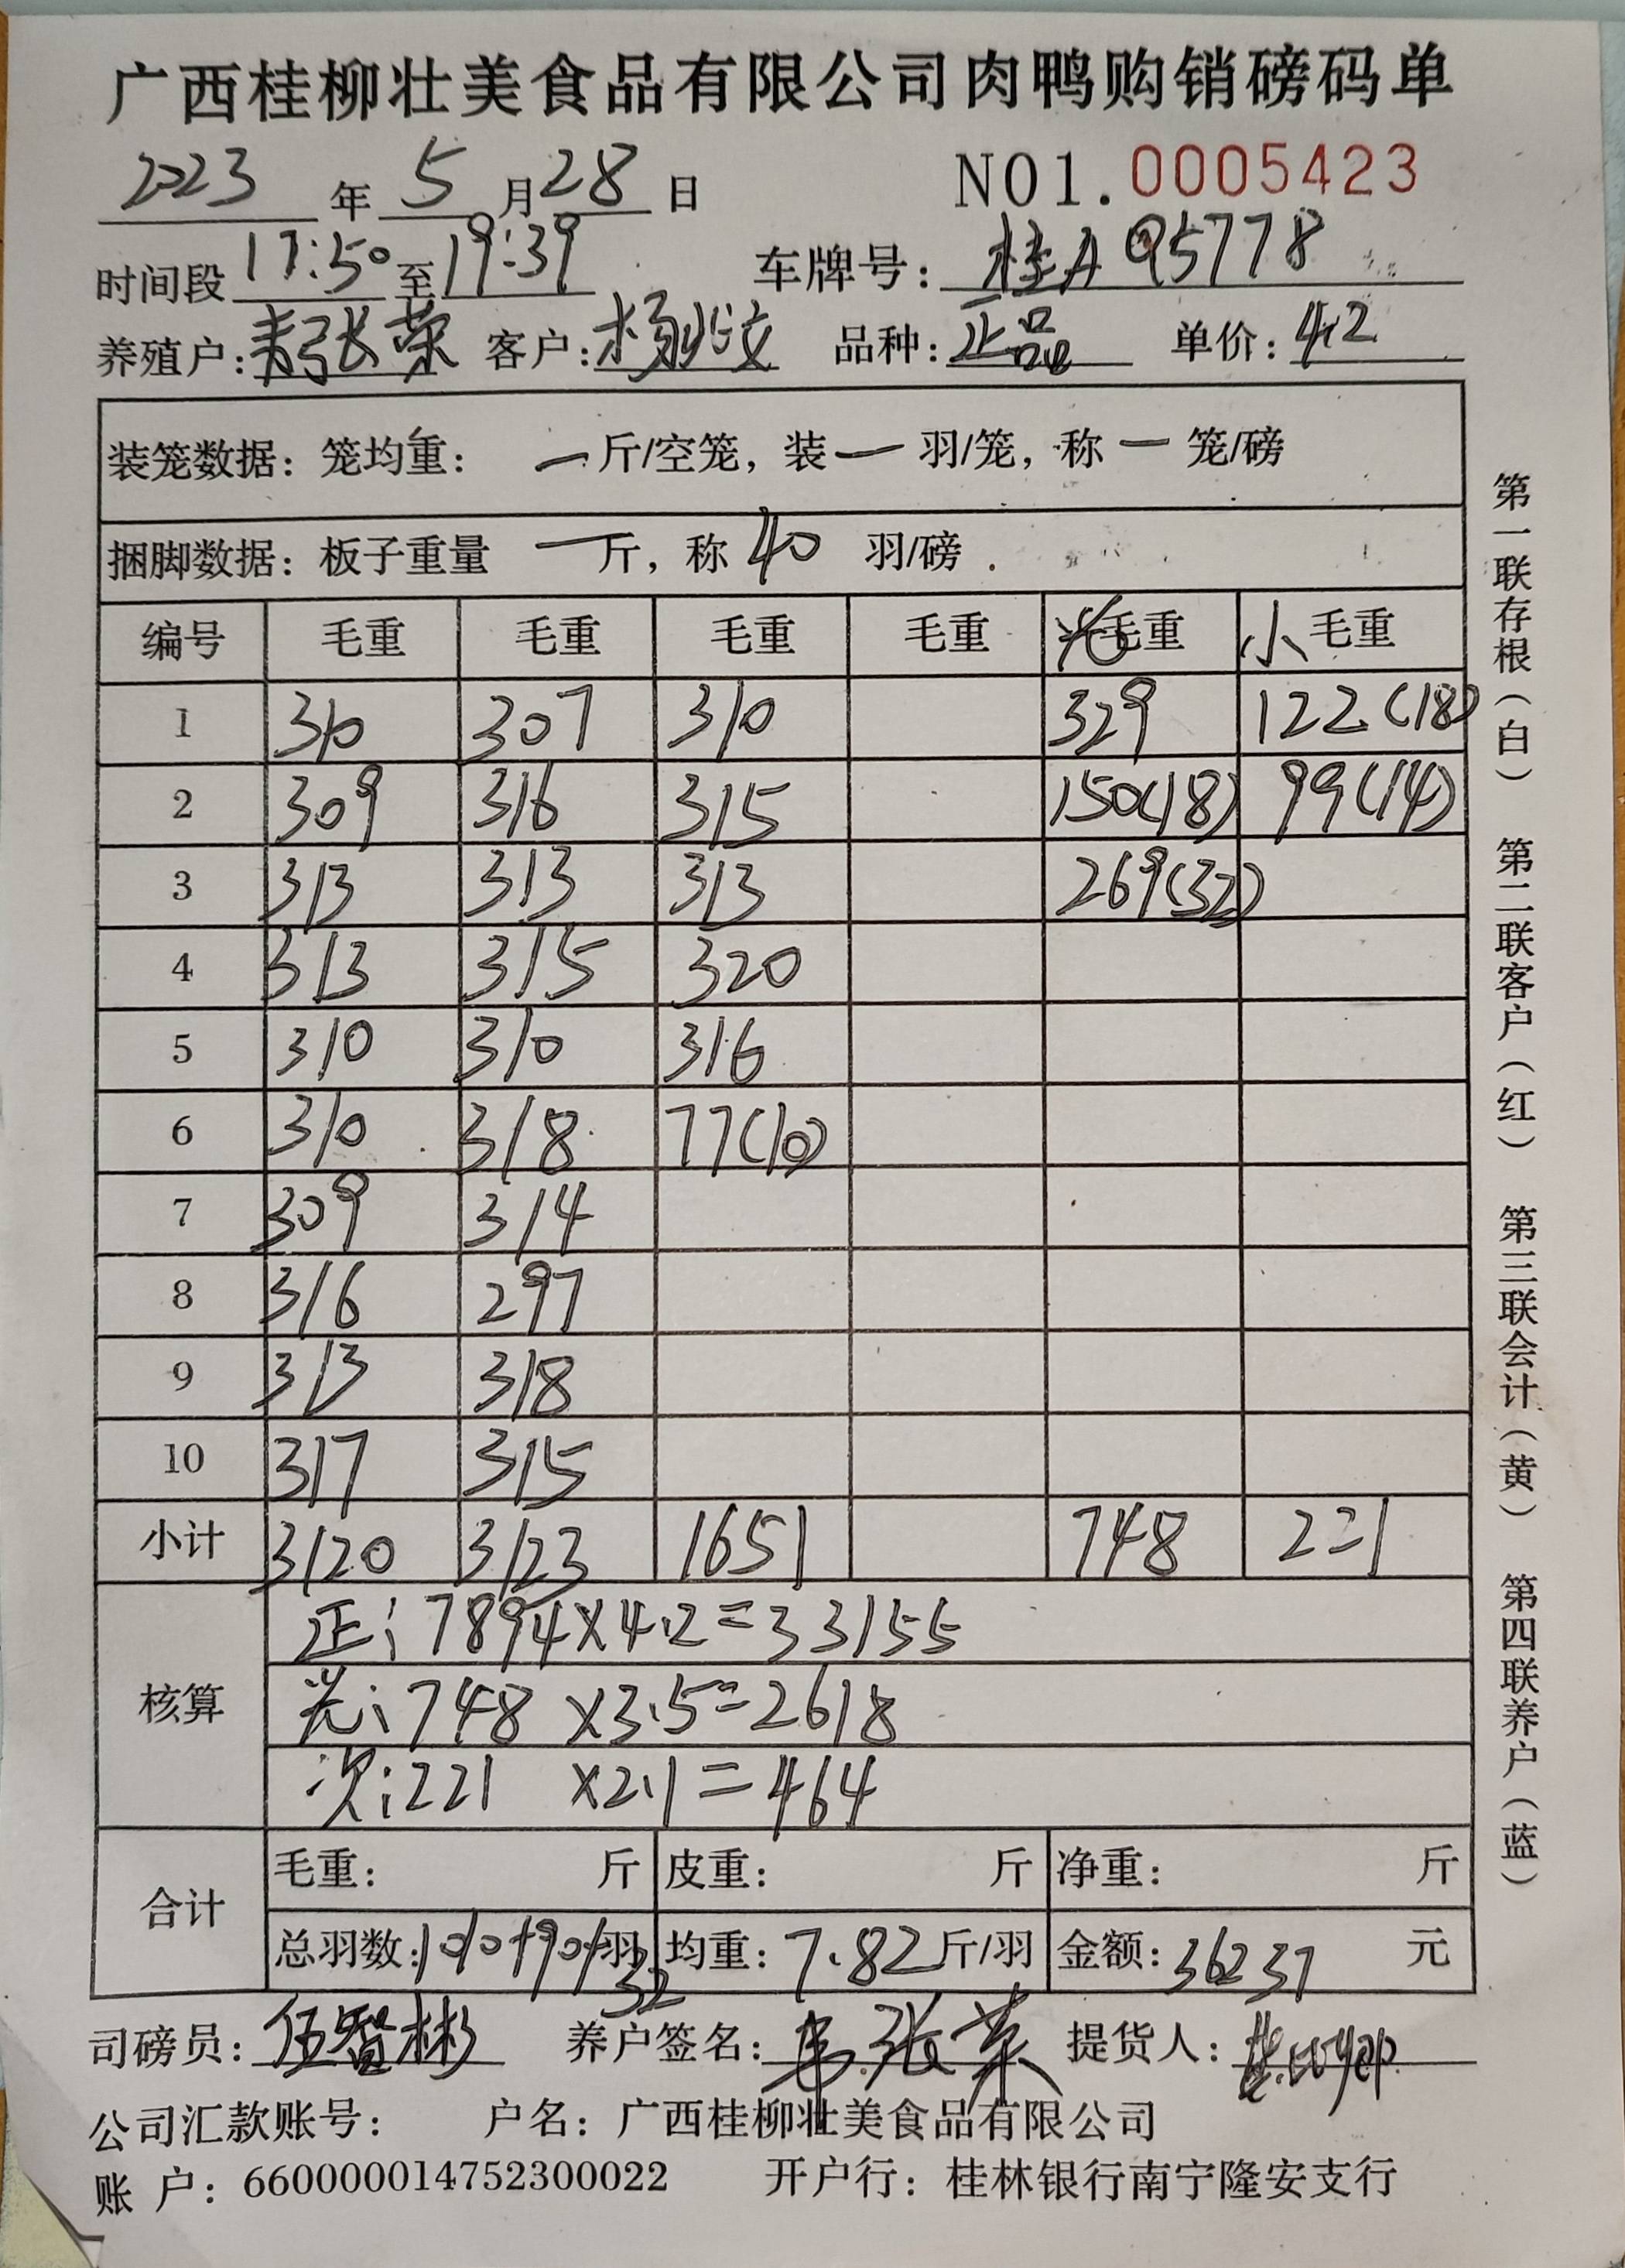 广西桂柳壮美食品有限公司肉鸭购销磅码单
2023 年 5 月 28 日 NO1.0005423
时间段 17:50 至 19:39 车牌号: 桂A Q5778
养殖户: 韦张荣 客户: 杨 品种: 正品 单价: 4.2
装笼数据: 笼均重: 一 斤/空笼, 装 一 羽/笼, 称 一 笼/磅
捆脚数据: 板子重量 一 斤, 称 40 羽/磅
编号 毛重 毛重 毛重 毛重 光毛重 小毛重
1 310 307 310 329 122(18)
2 309 316 315 150(18) 99(14)
3 313 313 313 269(32)
4 313 315 320
5 310 310 316
6 310 318 77(10)
7 309 314
8 316 297
9 313 318
10 317 315
小计 3120 3123 1651 748 221
核算
正: 7894×4.2=33155
光: 748 ×3.5=2618
次: 221 ×2.1=464
合计
毛重: 斤 皮重: 斤 净重: 斤
总羽数: 1010+90+32 羽 均重: 7.82 斤/羽 金额: 36237 元
司磅员: 伍智彬 养户签名: 韦张荣 提货人:
公司汇款账号: 户名: 广西桂柳壮美食品有限公司
账 户: 660000014752300022 开户行: 桂林银行南宁隆安支行
第一联存根(白) 第二联客户(红) 第三联会计(黄) 第四联养户(蓝)